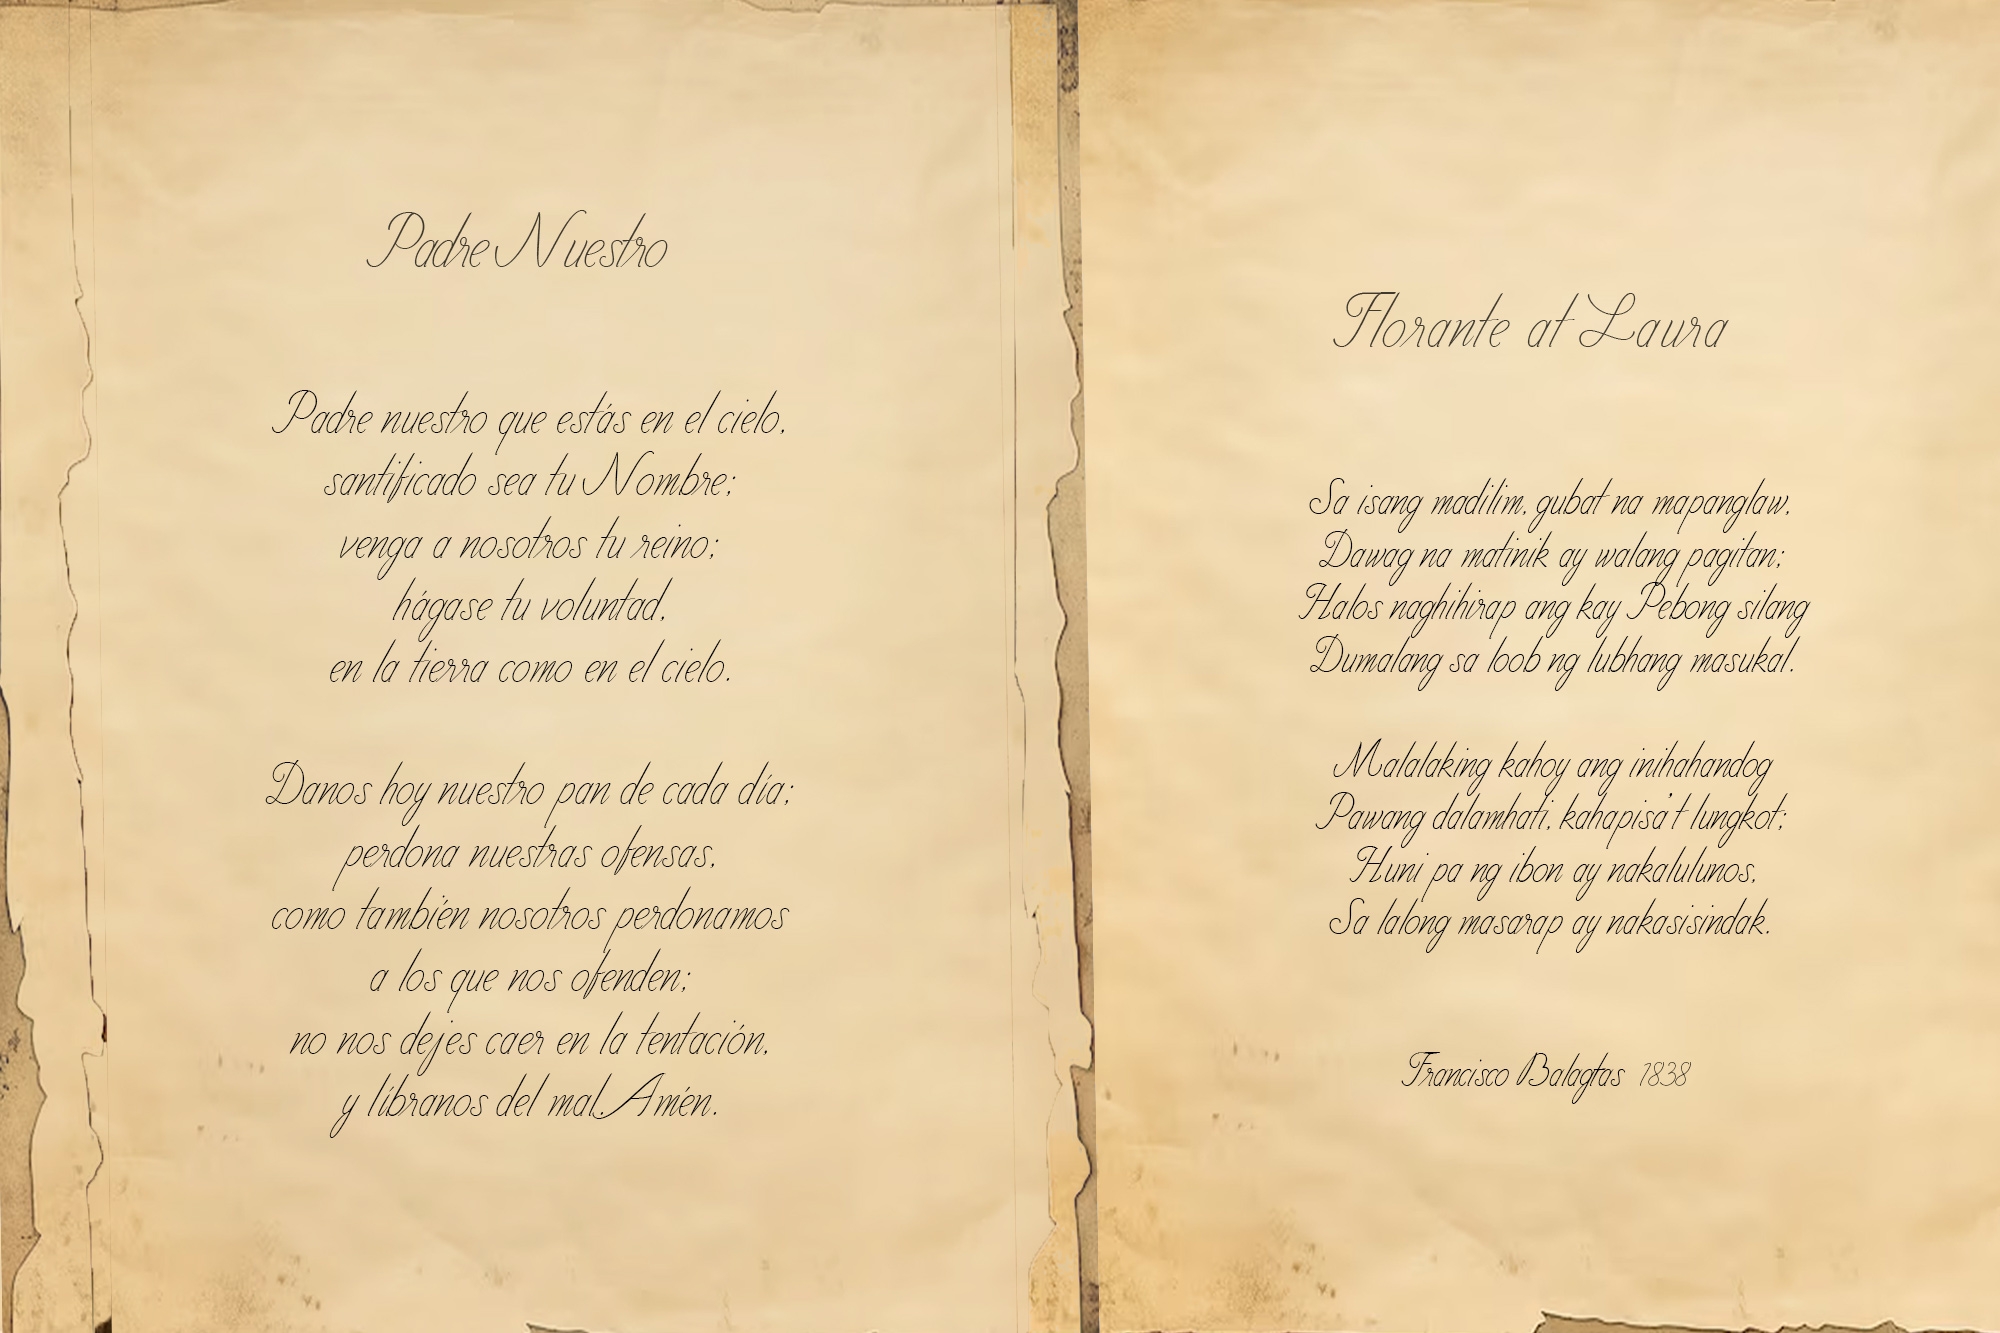 Padre Nuestro
Padre nuestro que estás en el cielo,
santificado sea tu Nombre;
venga a nosotros tu reino;
hágase tu voluntad,
en la tierra como en el cielo.
Danos hoy nuestro pan de cada día;
perdona nuestras ofensas,
como también nosotros perdonamos
a los que nos ofenden;
no nos dejes caer en la tentación,
y líbranos del mal. Amén.
Florante at Laura
Sa isang madilim, gubat na mapanglaw,
Dawag na matinik ay walang pagitan;
Halos naghihirap ang kay Pebong silang
Dumalang sa loob ng lubhang masukal.
Malalaking kahoy ang inihahandog
Pawang dalamhati, kahapisa't lungkot;
Huni pa ng ibon ay nakalulunos,
Sa lalong masarap ay nakasisindak.
Francisco Balagtas 1838